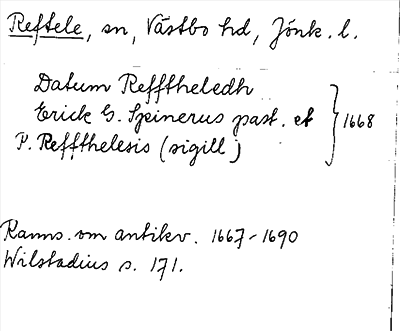 Reftele, sn, Västbo hd, Jönk. l.
Datum Refftheledh
Erick G. Spinerus past. et
P. Reffthelesis (sigill)
1668
Ranns. om antikv. 1667-1690
Wilstadius s. 171.